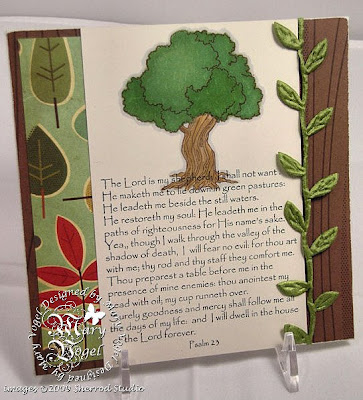 The Lord is my shepherd; I shall not want
He maketh me to lie down in green pastures:
He leadeth me beside the still waters.
He restoreth my soul: He leadeth me in the
paths of righteousness for His name's sake.
Yea, though I walk through the valley of the
shadow of death, I will fear no evil: for thou art
with me; thy rod and thy staff they comfort me.
Thou preparest a table before me in the
presence of mine enemies: thou anointest my
head with oil; my cup runneth over.
Surely goodness and mercy shall follow me all
the days of my life: and I will dwell in the house
of the Lord forever.
Psalm 23
Designed by Mary Vogel
Mary
Vogel
images ©2009 Sherrod Studio